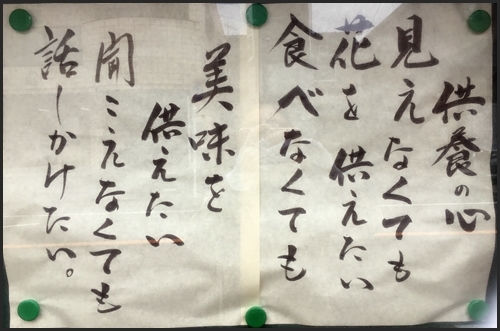 供養の心
見えなくても
花を供えたい
食べなくても
美味を
供えたい
聞こえなくても
話しかけたい。